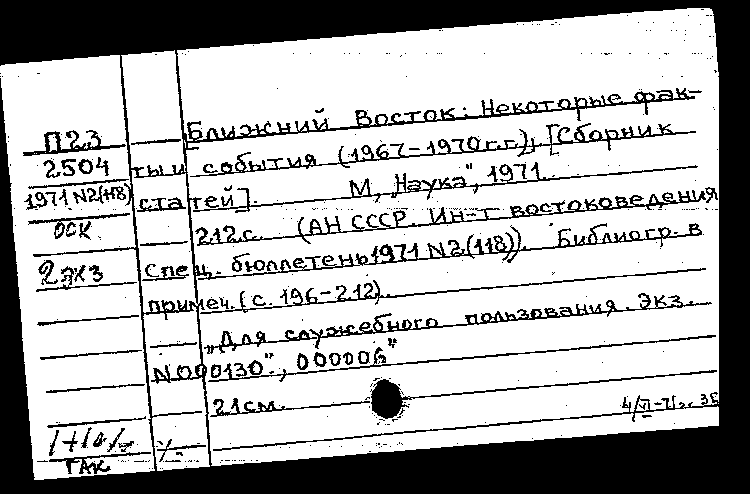 П23 Ближний Восток: Некоторые фак-
2504 ты и события (1967-1970г.г.), [Сборник
1971 N2(118) статей]. М, „Наука", 1971.
ОСК 212с. (АН СССР. Ин-т востоковедения
2 экз Спец. бюллетень 1971 N2(118)). Библиогр. в
примеч. (с. 196-212).
„Для служебного пользования. Экз.
N000130", 000006"
21см.
4/VI-71г.